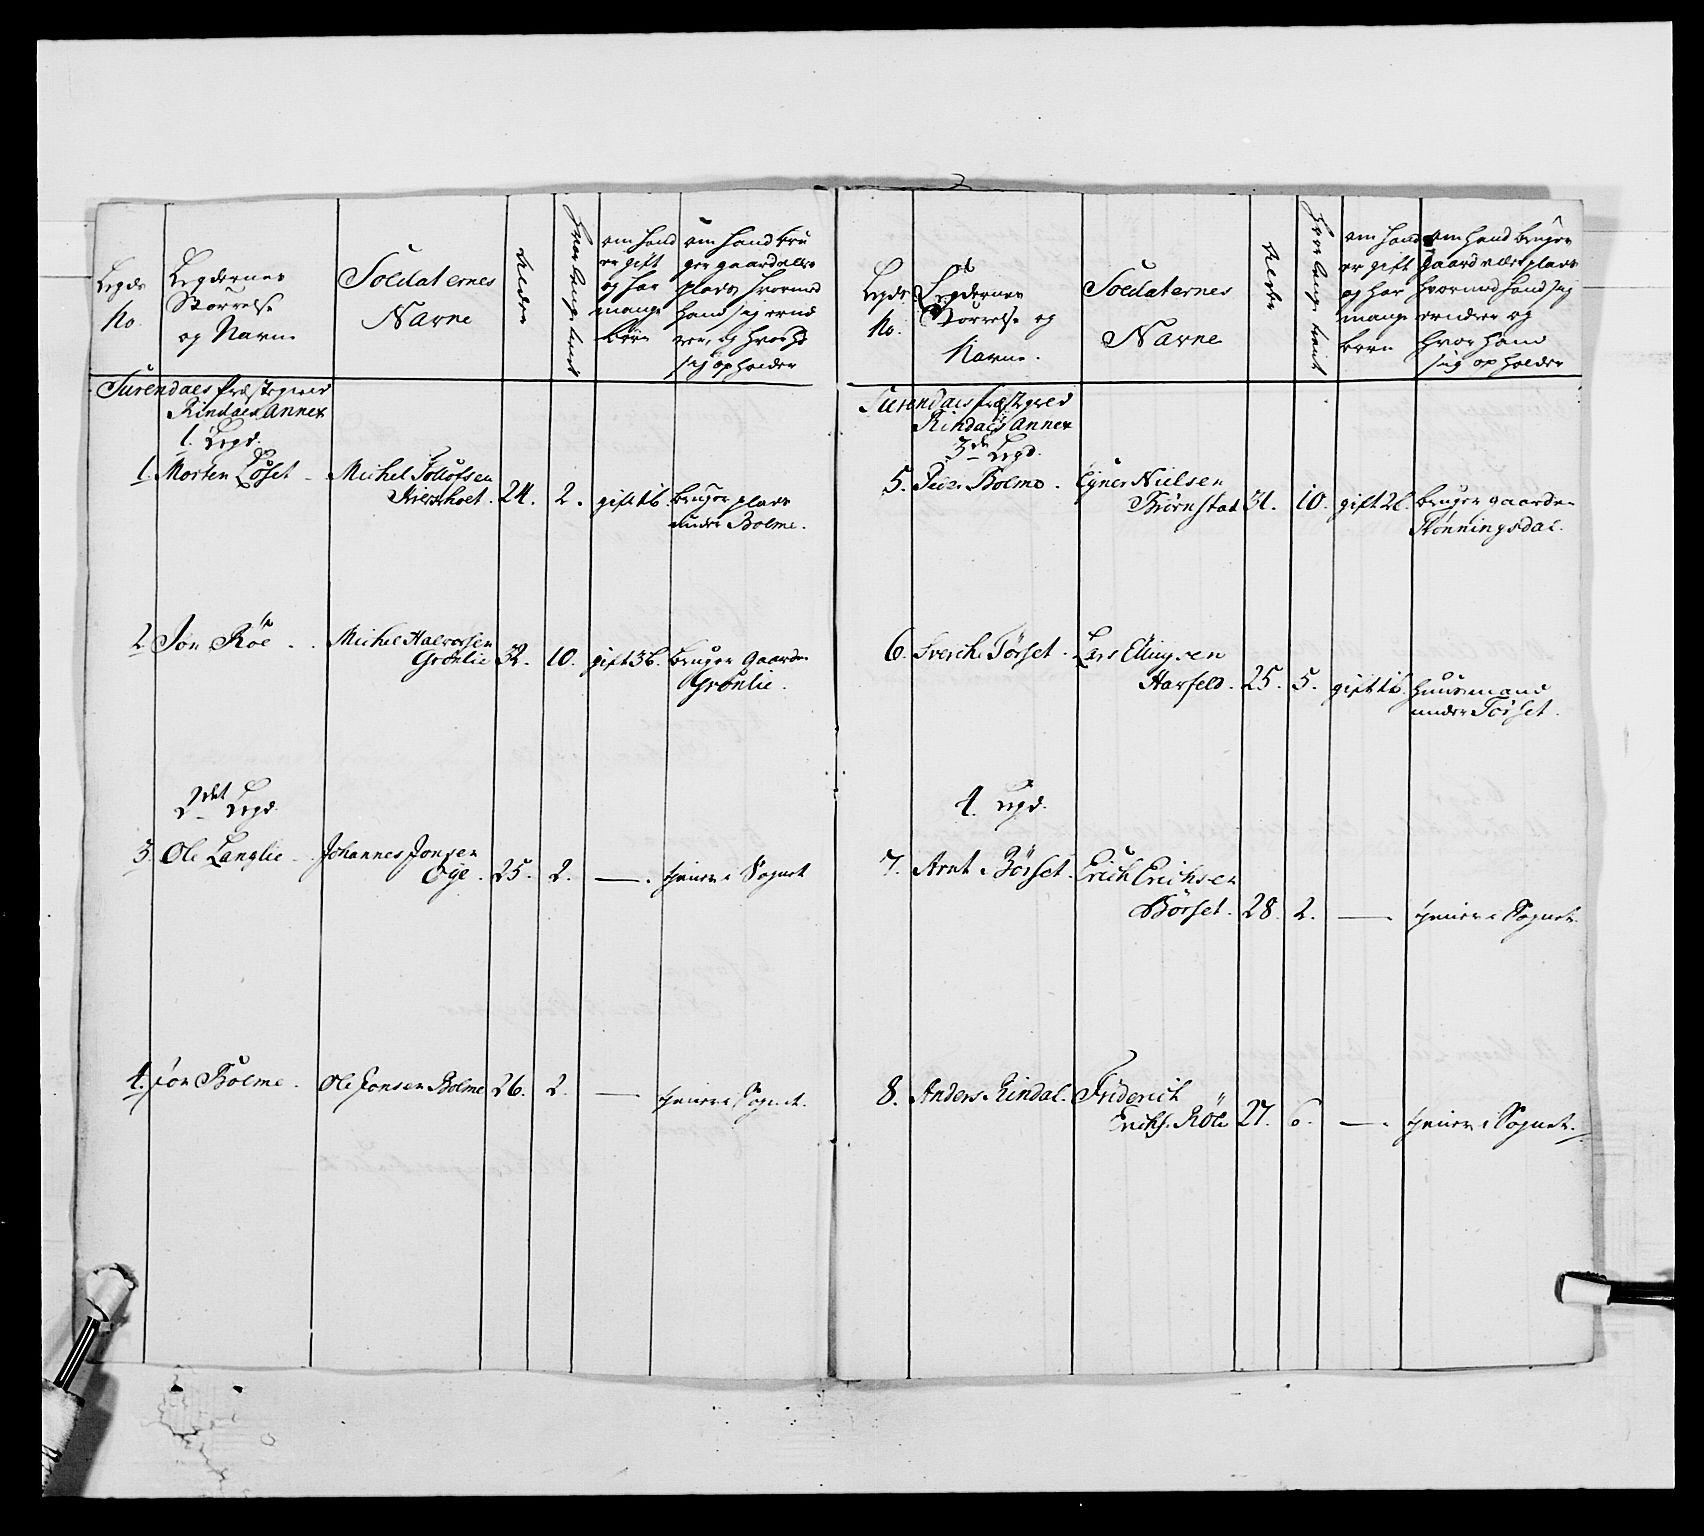 Legds
No.
Legdernes
Størrelse
og Navne
Soldaternes
Navne
Alder
Hvor lenge tient
om hand
er gift
og har
mange
børn
om hand bru
ger gaard eller
plads hvormed
hand sig ernæ
rer, og hvor hand
sig opholder
Surendals Præstegield
Rindals Annex
1. Legd.
1. Morten Løset - Michel Tolløfsen
24. 2. gift 1 b. bruger plads
under Bolme.
2 Jon Røe . . Michel Halvorsen
Grønlie 32. 10. gift 3 b. bruger gaarden
Grønlie.
2det Legd.
3. Ole Langlie - . Johannes Jonsen
Øye . 25. 2. —. tiener i Sognet
4. Jon Bolme . Ole Jonsen Bolme 26. 2. — tiener i Sognet.
Legds
No.
Legdernes
Størrelse og
Navne.
Soldaternes
Navne
Alder
Hvor lenge tient
om hand
er gift
og har
mange
børn
om hand bruger
gaard eller plads
hvormed hand sig
ernærer og
hvor hand
sig opholder
Surendals Præstgield
Rindals Annex
3de Legd.
5. Peder Bolme . Nielsen
Biørnstad 31. 10. gift 2 b. bruger gaarden
Rønningsdal.
6. Sverche Tørset . Lars Ellingsen
Harfeld. 25. 5. gift 1 b. huusmand
under Tørset.
4. Legd.
7. Arnt Børset. Erich Erichsen
Børset. 28. 2. —. tiener i Sognet.
8. Anders Rindal. Friderich
Erichs. Røe 27. 6. —. tiener i Sognet.